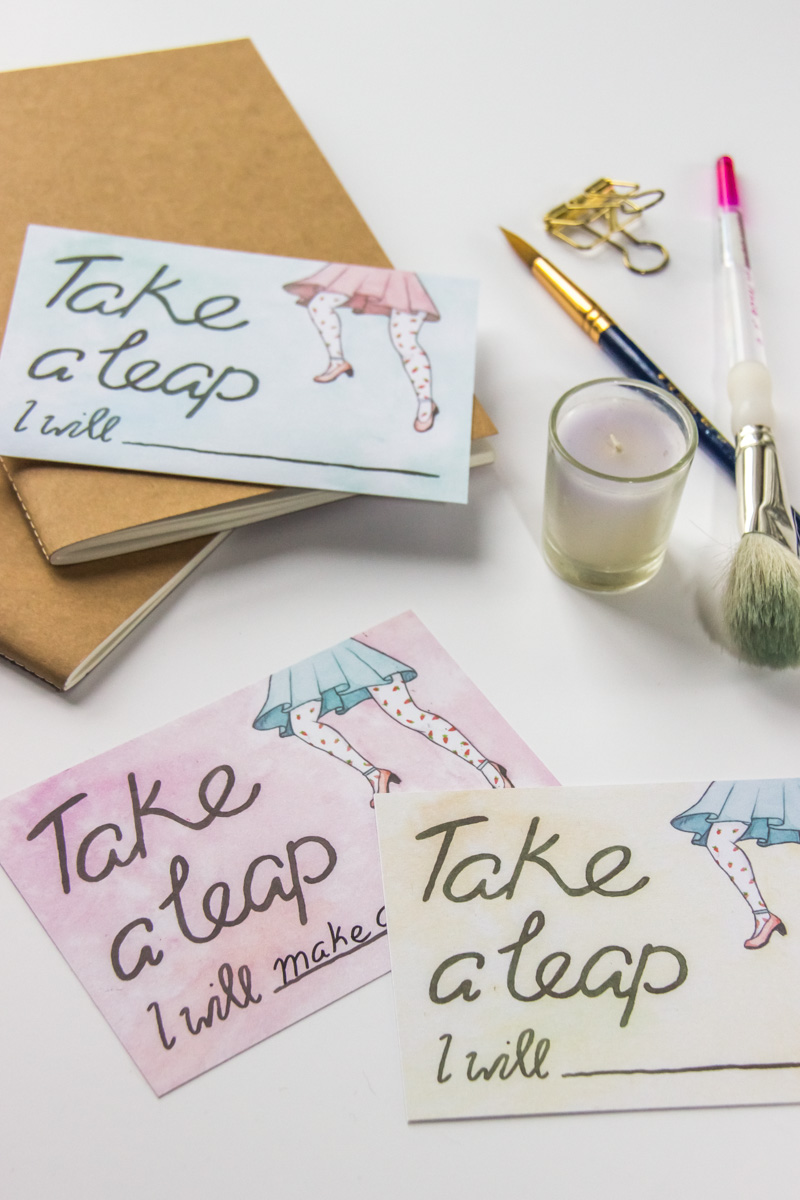 Take
a leap
I will
Take
a leap
I will make
Take
a leap
I will